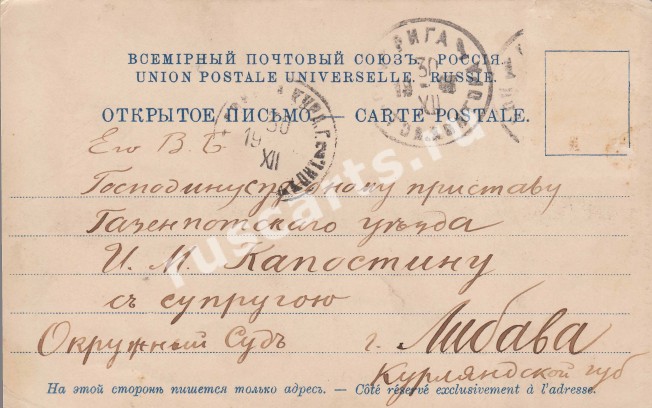 ВСЕМІРНЫЙ ПОЧТОВЫЙ СОЮЗЪ. РОССІЯ.
UNION POSTALE UNIVERSELLE. RUSSIE.
ОТКРЫТОЕ ПИСЬМО. — CARTE POSTALE.
РИГА
30
XII
30
19
XII
Его В. Б.
Господину судебному приставу
Газенпотскаго уѣзда
И. М. Капостину
съ супругою
Окружный Судъ г. Либава
Курляндской губ
На этой сторонѣ пишется только адресъ. — Côté réservé exclusivement à l'adresse.
ruscarts.ru